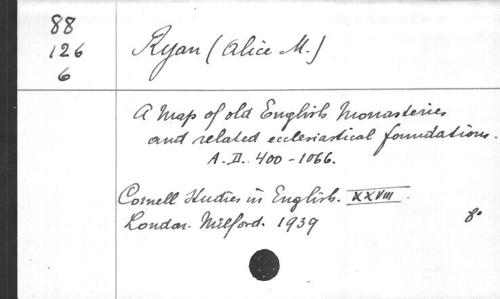 88
126
6
Ryan (Alice M.)
A Map of old English Monasteries
and related ecclesiastical foundations.
A.D. 400-1066.
Cornell Studies in English. XXVIII.
London. Milford. 1939
8º